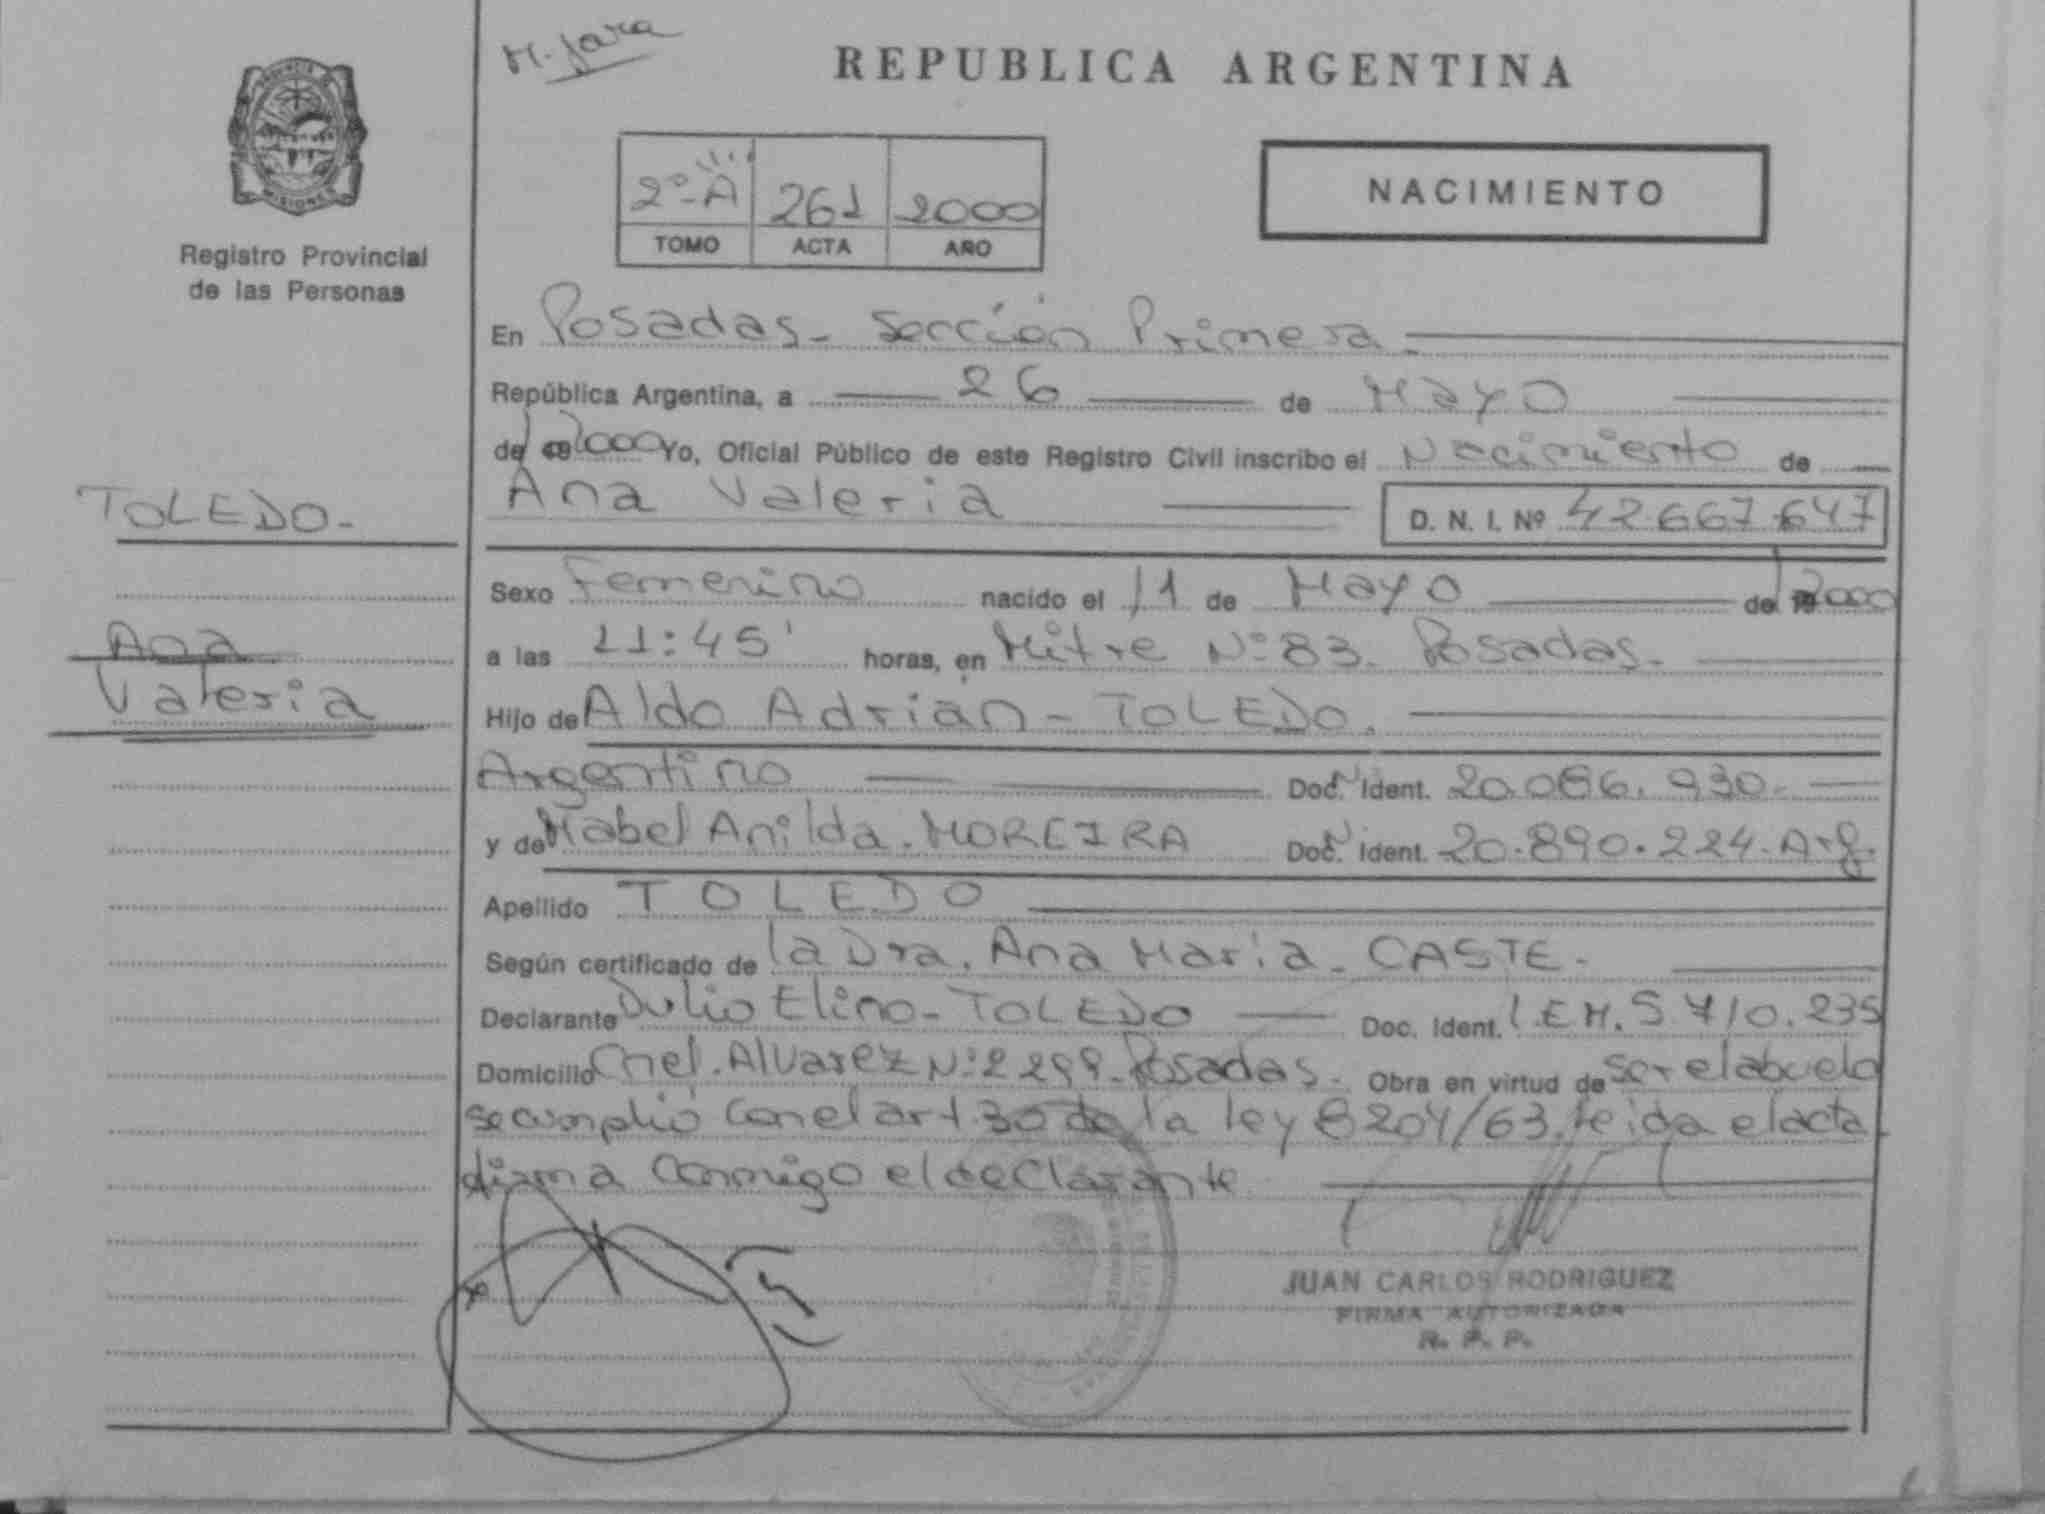 M. Jara
REPUBLICA ARGENTINA
PROVINCIA DE
MISIONES
Registro Provincial
de las Personas
2º-A 261 2000
TOMO ACTA AÑO
NACIMIENTO
En Posadas - Sección Primera.
República Argentina, a 26 de Mayo
de 2000 Yo, Oficial Público de este Registro Civil inscribo el Nacimiento de
Ana Valeria D. N. I. Nº 42.667.647
TOLEDO -
Ana
Valeria
Sexo Femenino nacido el 11 de Mayo de 2000
a las 11:45' horas, en Mitre Nº 83. Posadas.
Hijo de Aldo Adrián - TOLEDO.
Argentino Doc. Ident. 20.086.930.
y de Mabel Anilda. MOREIRA Doc. Ident. 20.890.224. Arg.
Apellido TOLEDO
Según certificado de la Dra. Ana María. CASTE.
Declarante Elino - TOLEDO Doc. Ident. L.E.M. 5.710.235
Domicilio Cnel. Alvarez Nº 2299. Posadas. Obra en virtud de ser el abuelo
se cumplió con el art. 30 de la ley 8204/63. leida el acta
firma conmigo el declarante
JUAN CARLOS RODRIGUEZ
FIRMA AUTORIZADA
R. P. P.